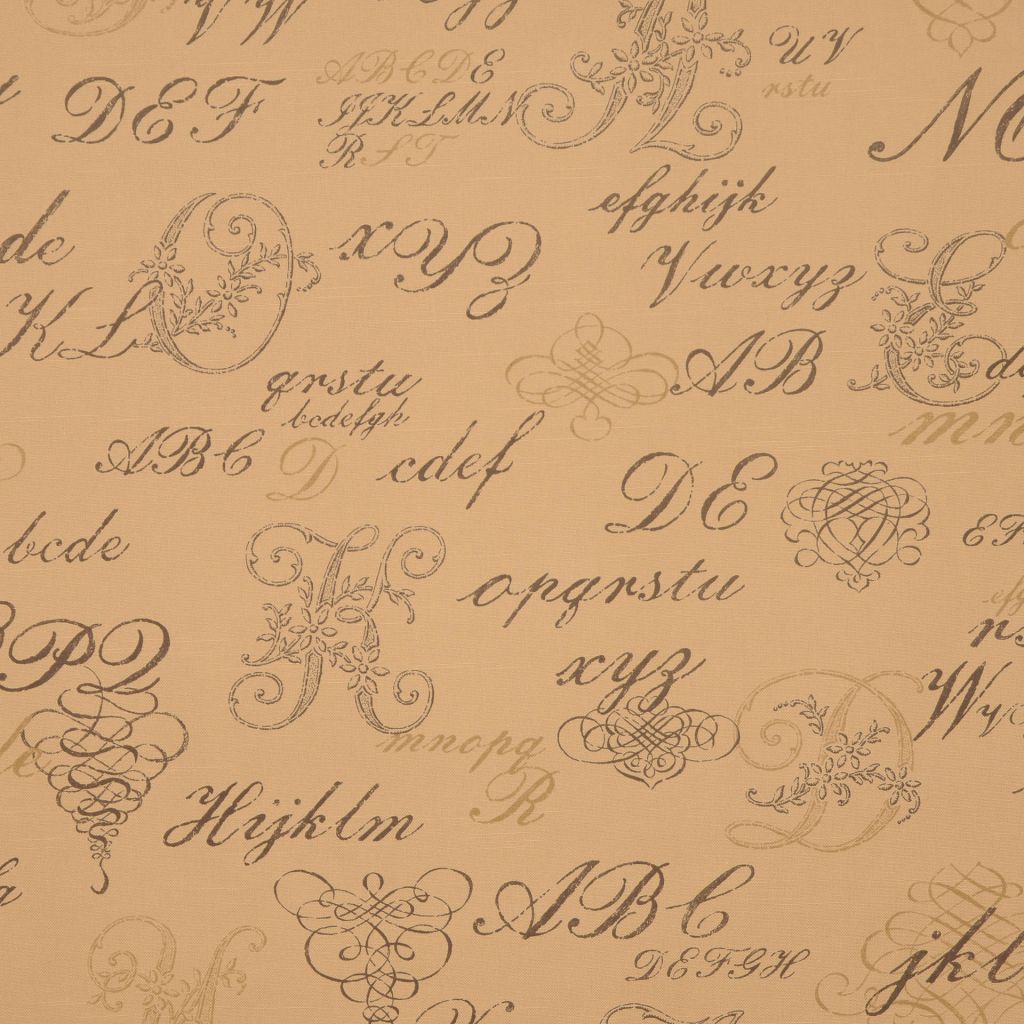 UV
ABCDE
DEF
rstu
IJKLMN
RST
efghijk
de
xYZ
O
Vwxyz
KL
AB
qrstu
bcdefgh
mn
ABC
D
cdef
DE
bcde
opqrstu
K
PQ
xyz
D
mnopq
R
Hijklm
ABC
DEFGH
jkl